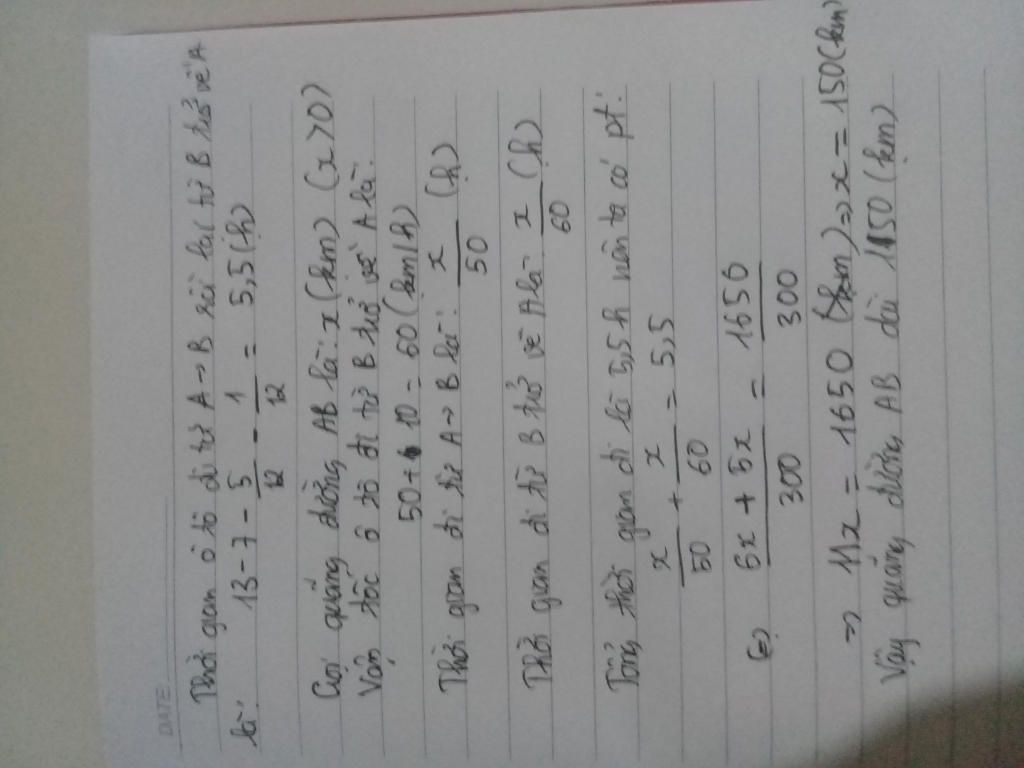 DATE
Thời gian ô tô đi từ A → B rồi lại từ B trở về A
là: 13 - 7 - 5/12 - 1/12 = 5,5 (h)
Gọi quãng đường AB là: x (km) (x > 0)
Vận tốc ô tô đi từ B trở về A là:
50 + 10 = 60 (km/h)
Thời gian đi từ A → B là: x/50 (h)
Thời gian đi từ B trở về A là: x/60 (h)
Tổng thời gian đi là 5,5h nên ta có pt:
x/50 + x/60 = 5,5
(=) 6x + 5x/300 = 1650/300
=> 11x = 1650 (km) => x = 150 (km)
Vậy quãng đường AB dài 150 (km)